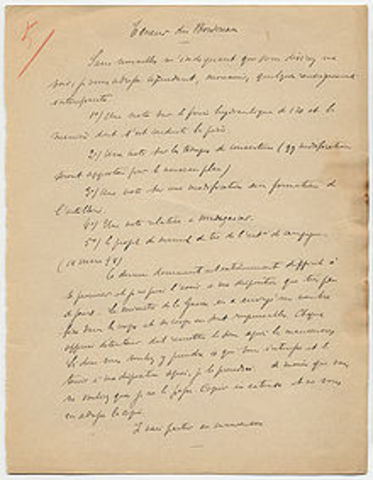 Teneur du Bordereau
Sans nouvelles m'indiquant que vous désirez me
voir, je vous adresse cependant, monsieur, quelques renseignements
intéressants
1°) Une note sur le frein hydraulique de 120 et la
manière dont s'est conduite la pièce
2°) Une note sur les troupes de couverture (qq modifications
seront apportées par le nouveau plan)
3°) Une note sur une modification aux formations de
l'artillerie.
4°) Une note relative à Madagascar.
5°) le projet de manuel de tir de l'art. de campagne
(14 mars 94)
Ce dernier document est extrêmement difficile à
se procurer et je ne puis l'avoir à ma disposition que très peu
de jours. Le ministre de la Guerre en a envoyé un nombre
fixe dans les corps et ces corps en sont responsables. Chaque
officier détenteur doit remettre le sien après les manœuvres
Si donc vous voulez y prendre ce que vous intéresse et le
tenir à ma disposition après, je le prendrai. À moins que vous
ne vouliez que je ne le fasse copier in extenso et ne vous
en adresse la copie.
Je vais partir en manœuvres